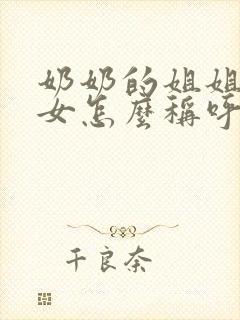 奶奶的姐姐
女怎麼稱呼
千良奈